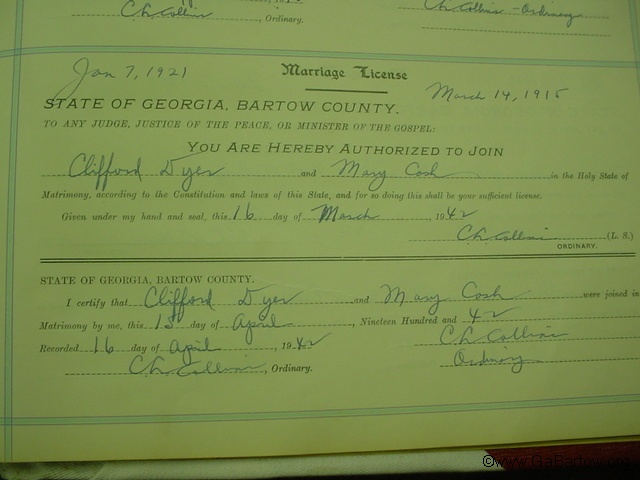 Ch Collins, Ordinary.
Ch Collins - Ordinary
Jan 7, 1921
Marriage License
March 14, 1915
STATE OF GEORGIA, BARTOW COUNTY.
TO ANY JUDGE, JUSTICE OF THE PEACE, OR MINISTER OF THE GOSPEL:
YOU ARE HEREBY AUTHORIZED TO JOIN
Clifford Dyer and Mary Cosh in the Holy State of
Matrimony, according to the Constitution and laws of this State, and for so doing this shall be your sufficient license.
Given under my hand and seal, this 16 day of March, 1942
Ch Collins (L. S.)
ORDINARY.
STATE OF GEORGIA, BARTOW COUNTY.
I certify that Clifford Dyer and Mary Cosh were joined in
Matrimony by me, this 15 day of April, Nineteen Hundred and 42
Recorded 16 day of April, 1942 Ch Collins
Ch Collins, Ordinary. Ordinary
©www.GaBartow.com